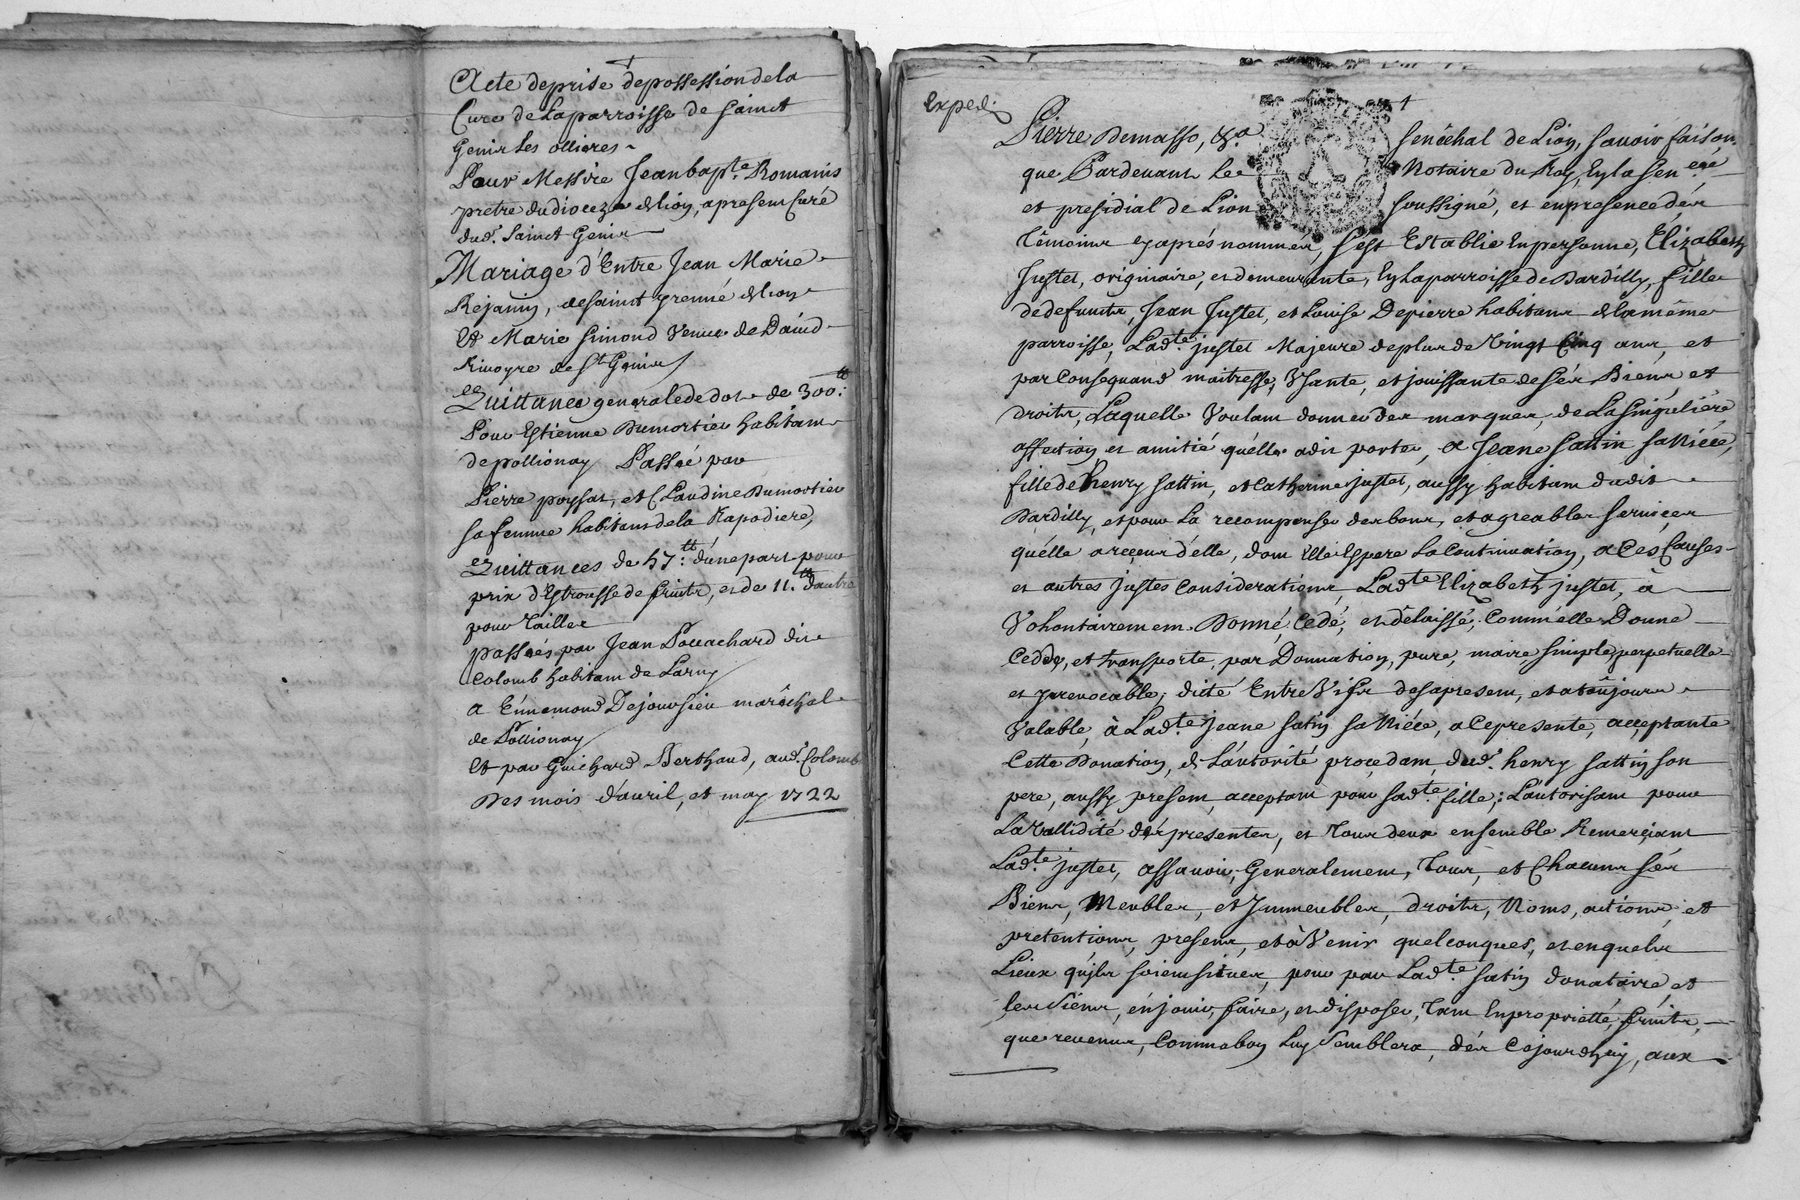 Acte deprise depossession dela
Cure de Laparroisse de sainct
Genis Les ollieres
Pour Messire Jean bapte. Romanis
prêtre du dioceze de lion, apresent Curé
dud. Sainct Genis
Mariage d'Entre Jean Marie
Réjanny, de sainct yrenné de lion
Et Marie simond Veuve de David
Rivoyre de St Genis
Quittance generale de dot de 300.tt
Pour Estienne Dumortier habitant
de pollionay Passée par
Pierre poyssat, et Claudine Dumortier
sa femme habitans dela Rapodiere,
Quittances de 57.tt d'une part pour
prix d'Estrousse de fruits, et de 11.tt d'autre
pour Taille
passées par Jean Pouachard dit
Colomb habitant de Larny
a Ennemond Dejoursieu marêchal
de Pollionay
Et par Guichard Berthaud, aud. Colomb
Des mois d'avril, et may 1722
Exped.
1
Pierre Demasso, &a. senêchal de Lion, savoir faison
que Pardevant Le Notaire du Roy, En la senee
et presidial de Lion soussigné, et en presence dés
témoins ey aprés nommés, s'est Establie En personne, Elizabeth
Justet, originaire, et demeurante, En La parroisse de Dardilly, fille
de defuncts, Jean Justet, et Louise Depierre habitans de la même
parroisse, Ladte. justet Majeure deplus de Vingt Cinq ans, et
par Consequand maitresse, Usante, et joüissante de sés Biens et
droits, Laquelle Voulant donner des marques, de La singuliére
affection et amitié quélle a dit porter, a Jeane sattin sa Niéce,
fille de henry sattin, et Catherine justet, aussy habitans dudit
Dardilly, et pour La recompenser des bons, et agreables services
quélle a reçeus d'elle, dont Elle Espere La Continuation, a Ces Causes
et autres justes Considerations, Ladte Elizabeth justet, à
Volontairement Donné, Cédé, et délaissé, Comm'elle Donne
Cedde, et transporte, par Donnation, pure, maire, simple, perpetuelle
et yrrevocable, dicté Entre Vifs des apresent, et a toûjours
Valable, à Ladte. jeane satin sa Niéce, a Ce presente, acceptante
Cette Donation, de L'autorité procedant, dud. henry sattin son
pere, aussy present, acceptant pour sadte. fille, L'autorisant pour
La Vallidité dés presentes, et Tous deux ensemble Remerçiant
Ladte. justet, assavoir, Generalement, Tous, et Chacuns sés
Biens, Meubles, et Immeubles, droits, Noms, actions, et
pretentions, presens, et à Venir quelconques, et en quels
Lieux qu'ils soient situés, pour par Ladte. satin donataire, et
les siens, en joüir, faire, et disposer, Tant En proprietté, fruits,
que revenus, Comme bon Luy semblera, dés Cejourdhuy, aux